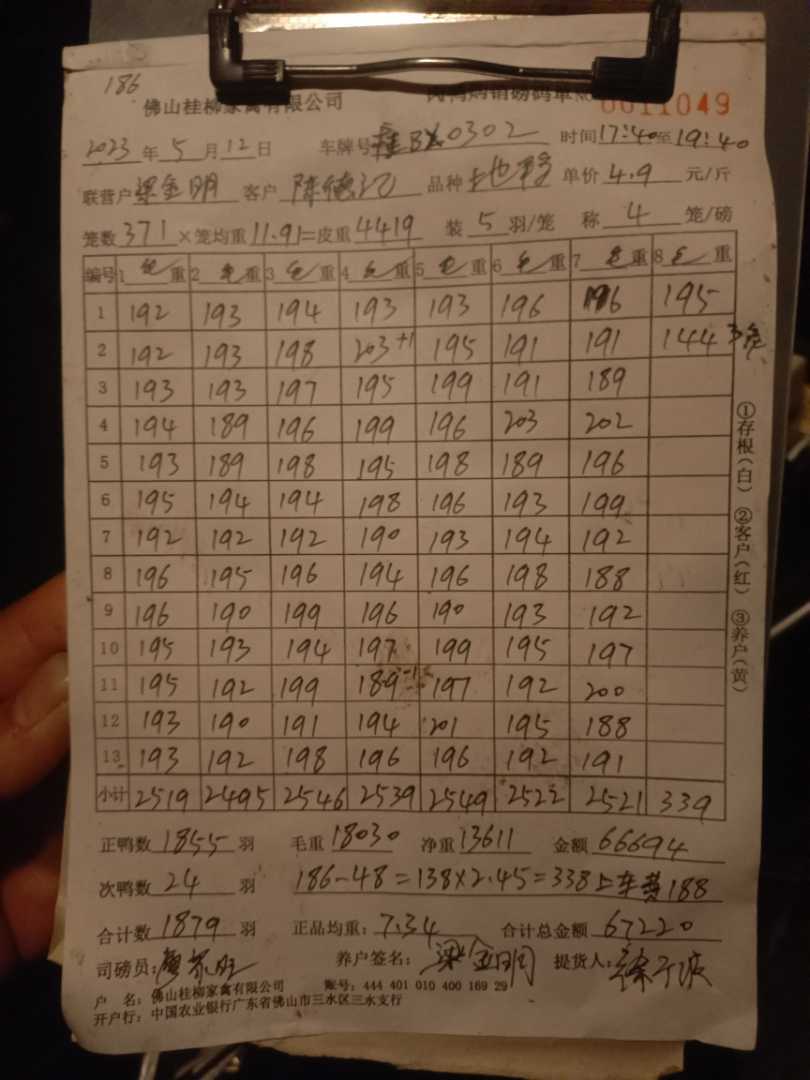 186
佛山桂柳家禽有限公司 0011049
2023年5月12日 车牌号 0302 时间17:40至19:40
联营户梁金明 客户陈德记 品种 单价4.9元/斤
笼数371×笼均重11.91=皮重4419 装5羽/笼 称4笼/磅
编号 1毛重 2毛重 3毛重 4毛重 5毛重 6毛重 7毛重 8毛重
1 192 193 194 193 193 196 196 195
2 192 193 198 203+1 195 191 191 144
3 193 193 197 195 199 191 189
4 194 189 196 199 196 203 202
5 193 189 198 195 198 189 196
6 195 194 194 198 196 193 199
7 192 192 192 190 193 194 192
8 196 195 196 194 196 198 188
9 196 190 199 196 190 193 192
10 195 193 194 197 199 195 197
11 195 192 199 189-1 197 192 200
12 193 190 191 194 201 195 188
13 193 192 198 196 196 192 191
小计 2519 2495 2546 2539 2549 2522 2521 339
正鸭数1855羽 毛重18030 净重13611 金额66694
次鸭数24羽 186-48=138×2.45=338上车费188
合计数1879羽 正品均重:7.34 合计总金额67220
司磅员: 养户签名:梁金明 提货人:
户 名:佛山桂柳家禽有限公司 账号:444 401 010 400 169 29
开户行:中国农业银行广东省佛山市三水区三水支行
①存根(白) ②客户(红) ③养户(黄)